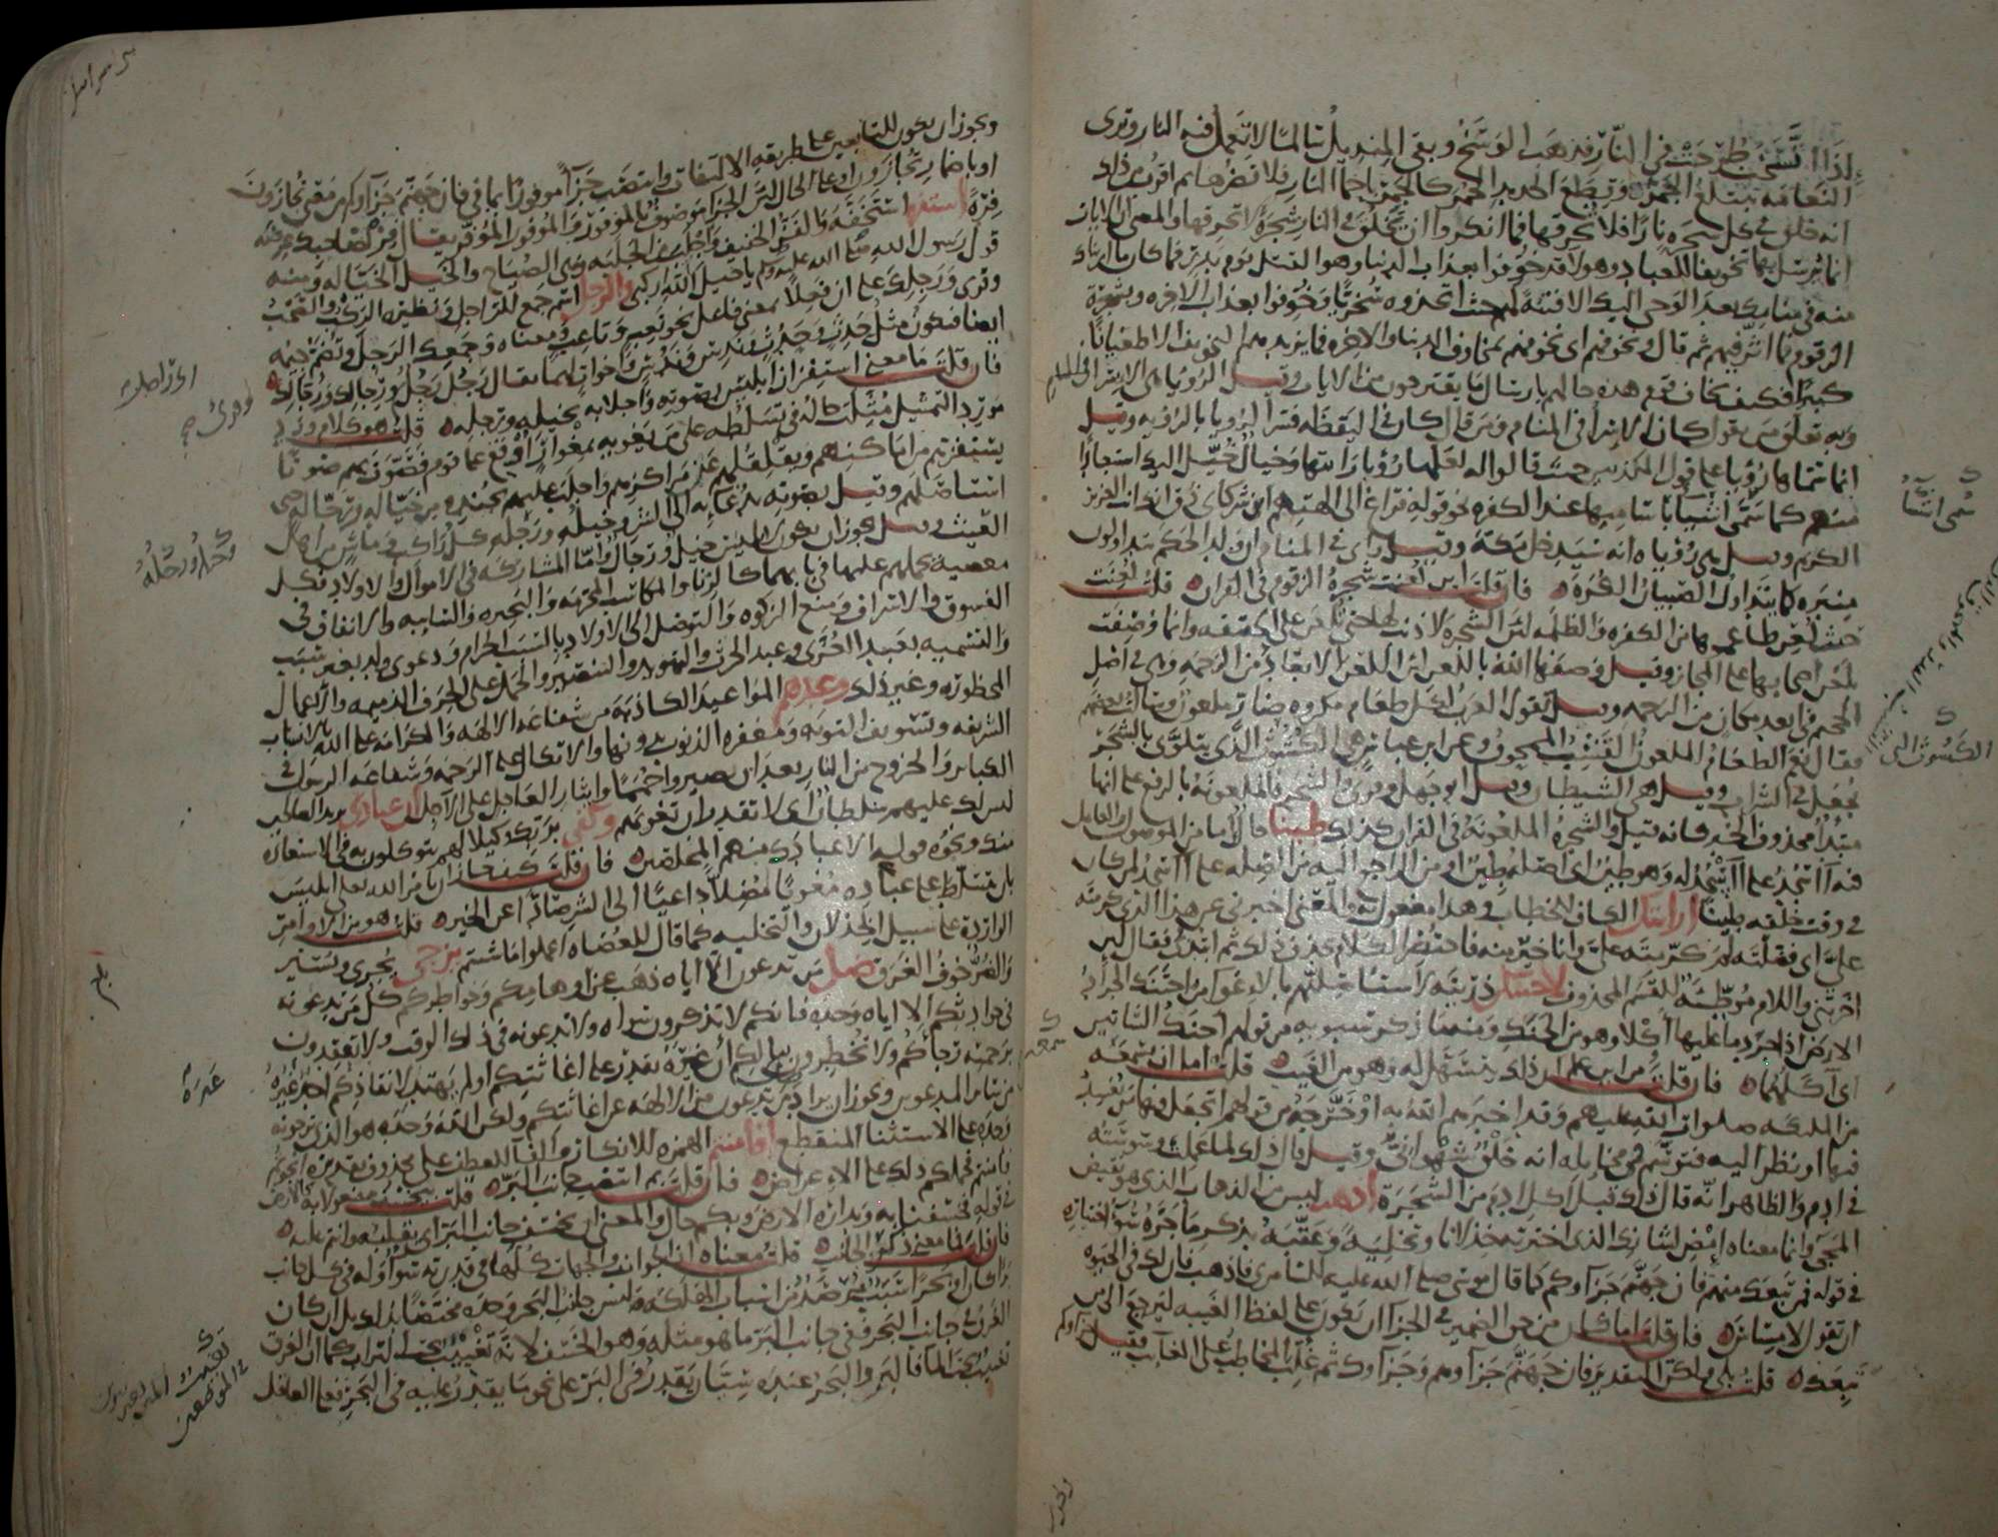 إذا اتسخت طرحت في النار فذهب الوسخ وبقي المنديل سالما لا تعمل فيه النار وترى
النعامة تبتلع الجمر وقطع الحديد الحمر كالجمر بإحماء النار فلا تضرها ثم أقرب من ذلك
أنه خلق في كل شجرة نارا فلا تحرقها فما أنكروا أن يخلق في النار شجرة لا تحرقها والمعنى أن الآيات
إنما يرسل بها تخويفا للعباد وهؤلاء قد خوفوا بعذاب الدنيا وهو القتل يوم بدر فما كان ما أريناك
منه في منامك بعد الوحي إليك إلا فتنة لهم حيث اتخذوه سخريا وخوفوا بعذاب الآخرة وشجرة
الزقوم فما أثر فيهم ثم قال ونخوفهم أي نخوفهم بمخاوف الدنيا والآخرة فما يزيدهم التخويف إلا طغيانا
كبيرا فكيف يخاف قوم هذه حالهم بإرسال ما يقترحون من الآيات وقيل الرؤيا هي الإسراء
وبه تعلق من يقول كان الإسراء في المنام ومن قال كان في اليقظة فسر الرؤيا بالرؤية وقيل
إنما سماها رؤيا على قول المكذبين حيث قالوا له لعلها رؤيا رأيتها وخيال خيل إليك استبعادا
منهم كما سمى أشياء بأساميها عند الكفرة نحو قوله فراغ إلى آلهتهم أين شركائي ذق إنك أنت العزيز
الكريم وقيل هي رؤياه أنه سيدخل مكة وقيل رأى في المنام أن ولد الحكم يتداولون
منبره كما يتداول الصبيان الكرة فإن قلت أين لعنت شجرة الزقوم في القرآن قلت لعنت
حيث لعن طاعموها من الكفرة والظلمة لأن الشجرة لا ذنب لها حتى تلعن على الحقيقة وإنما وصفت
بلعن أصحابها على المجاز وقيل وصفها الله باللعن لأن اللعن الإبعاد من الرحمة وهي في أصل
الجحيم في أبعد مكان من الرحمة وقيل تقول العرب لكل طعام مكروه ضار ملعون وسألت بعضهم
فقال نعم الطعام الملعون القشب الممحوق وعن ابن عباس هي الكشوث الذي يتلوى بالشجر
يجعل في الشراب وقيل هي الشيطان وقيل أبو جهل وقرئ والشجرة الملعونة بالرفع على أنها
مبتدأ محذوف الخبر كأنه قيل والشجرة الملعونة في القرآن كذلك طينا حال إما من الموصول والعامل
فيه أأسجد على أأسجد له وهو طين أي أصله طين أو من الراجع إليه من الصلة على أأسجد لمن كان
في وقت خلقه طينا أرأيتك الكاف للخطاب وهذا مفعول به والمعنى أخبرني عن هذا الذي كرمته
علي أي فضلته لم كرمته علي وأنا خير منه فاختصر الكلام بحذف ذلك ثم ابتدأ فقال لئن
أخرتني واللام موطئة للقسم المحذوف لأحتنكن ذريته لأستأصلنهم بالإغواء من احتنك الجراد
الأرض إذا جرد ما عليها أكلا وهو من الحنك ومنه ما ذكر سيبويه من قولهم أحنك الشاتين
أي آكلهما فإن قلت من أين علم أن ذلك يتسهل له وهو من الغيب قلت إما أن سمعه
من الملائكة صلوات الله عليهم وقد أخبرهم الله به أو خرجه من قولهم أتجعل فيها من يفسد
فيها أو نظر إليه فتوسم في مخايله أنه خلق شهواني وقيل قال ذلك لما عملت وسوسته
في آدم والظاهر أنه قال ذلك قبل أكل آدم من الشجرة اذهب ليس من الذهاب الذي هو نقيض
المجيء وإنما معناه امض لشأنك الذي اخترته خذلانا وتخلية وعقبه بذكر ما جره سوء اختياره
في قوله فمن تبعك منهم فإن جهنم جزاؤكم كما قال موسى صلى الله عليه للسامري فاذهب فإن لك في الحيوة
أن تقول لا مساس فإن قلت أما كان من حق الضمير في الجزاء أن يكون على لفظ الغيبة ليرجع إلى من
تبعك قلت بلى ولكن التقدير فإن جهنم جزاؤهم وجزاؤك ثم غلب المخاطب على الغائب فقيل جزاؤكم
سمى أشياء
الكشوث الذي
ويجوز أن يكون للتابعين على طريقة الالتفات وانتصب جزاء موفورا بما في فإن جهنم جزاؤكم من معنى تجازون
أو بإضمار تجازون أو على الحال لأن الجزاء موصوف بالموفور والموفور الموفر يقال فر لصاحبك عرضه
فرة استفزه استخفه والفز الخفيف وأجلب من الجلبة وهي الصياح والخيل الخيالة ومنه
قول رسول الله صلى الله عليه وسلم يا خيل الله اركبي والرجل اسم جمع للراجل ونظيره الركب والصحب
وقرئ ورجلك على أن فعلا بمعنى فاعل نحو تعب وتاعب ومعناه وجمعك الرجل وتضم جيمه
أيضا فيكون مثل حدث وحدث وندس وندس وأخوات لهما يقال رجل رجل ورجالك ورجالك
فإن قلت ما معنى استفزاز إبليس بصوته وإجلابه بخيله ورجله قلت هو كلام ورد
مورد التمثيل مثلت حاله في تسلطه على من يغويه بمغوار أوقع على قوم فصوت بهم صوتا
يستفزهم من أماكنهم ويقلعهم عن مراكزهم وأجلب عليهم بجنده من خيالة ورجالة حتى
استأصلهم وقيل بصوته بدعائه إلى الشر وخيله ورجله كل راكب وماش من أهل
العيث وقيل يجوز أن يكون لإبليس خيل ورجال وأما المشاركة في الأموال والأولاد فكل
معصية يحملهم عليها في بابهما كالربا والمكاسب المحرمة والبحيرة والسائبة والإنفاق في
الفسوق والإسراف ومنع الزكوة والتوصل إلى الأولاد بالسبب الحرام ودعوى ولد بغير سبب
والتسمية بعبد العزى وعبد الحرث والتهويد والتنصير والحمل على الحرف الذميمة والأعمال
المحظورة وغير ذلك وعدهم المواعيد الكاذبة من شفاعة الآلهة والكرامة على الله بالأنساب
الشريفة وتسويف التوبة ومغفرة الذنوب بدونها والاتكال على الرحمة وشفاعة الرسول في
الكبائر والخروج من النار بعد أن يصيروا حمما وإيثار العاجل على الآجل إن عبادي يريد الصالحين
ليس لك عليهم سلطان أي لا تقدر أن تغويهم وكفى بربك وكيلا لهم يتوكلون به في الاستعاذة
منك ونحوه قوله إلا عبادك منهم المخلصين فإن قلت كيف جاز أن يأمر الله تعالى إبليس
بأن يتسلط على عباده مغويا مضلا داعيا إلى الشر صادا عن الخير قلت هو من الأوامر
الواردة على سبيل الخذلان والتخلية كما قال للعصاة اعملوا ما شئتم يزجي يجري ويسير
والضر خوف الغرق ضل من تدعون إلا إياه ذهب عن أوهامكم وخواطركم كل من تدعونه
في حوادثكم إلا إياه وحده فإنكم لا تذكرون سواه ولا تدعونه في ذلك الوقت ولا تعقدون
برحمته رجاءكم ولا تخطرون ببالكم أن غيره يقدر على إغاثتكم أو لم يهتد لإنقاذكم أحد غيره
من سائر المدعوين ويجوز أن يراد ضل من تدعون من الآلهة عن إغاثتكم ولكن الله وحده هو الذي ترجونه
وحده على الاستثناء المنقطع أفأمنتم الهمزة للإنكار والفاء للعطف على محذوف تقديره أنجوتم
فأمنتم فحملكم ذلك على الإعراض فإن قلت بم انتصب جانب البر قلت بيخسف مفعولا به كالأرض
في قوله فخسفنا به وبداره الأرض وبكم حال والمعنى أن يخسف جانب البر أي يقلبه وأنتم عليه
فإن قلت فما معنى ذكر الجانب قلت معناه أن الجوانب والجهات كلها في قدرته سواء وله في كل جانب
برا كان أو بحرا سبب مرصد من أسباب الهلكة ليس جانب البحر وحده مختصا بذلك بل إن كان
الغرق في جانب البحر ففي جانب البر ما هو مثله وهو الخسف لأنه تغييب تحت التراب كما أن الغرق
تغييب تحت الماء فالبر والبحر عنده سيان يقدر في البر على نحو ما يقدر عليه في البحر فعلى العاقل